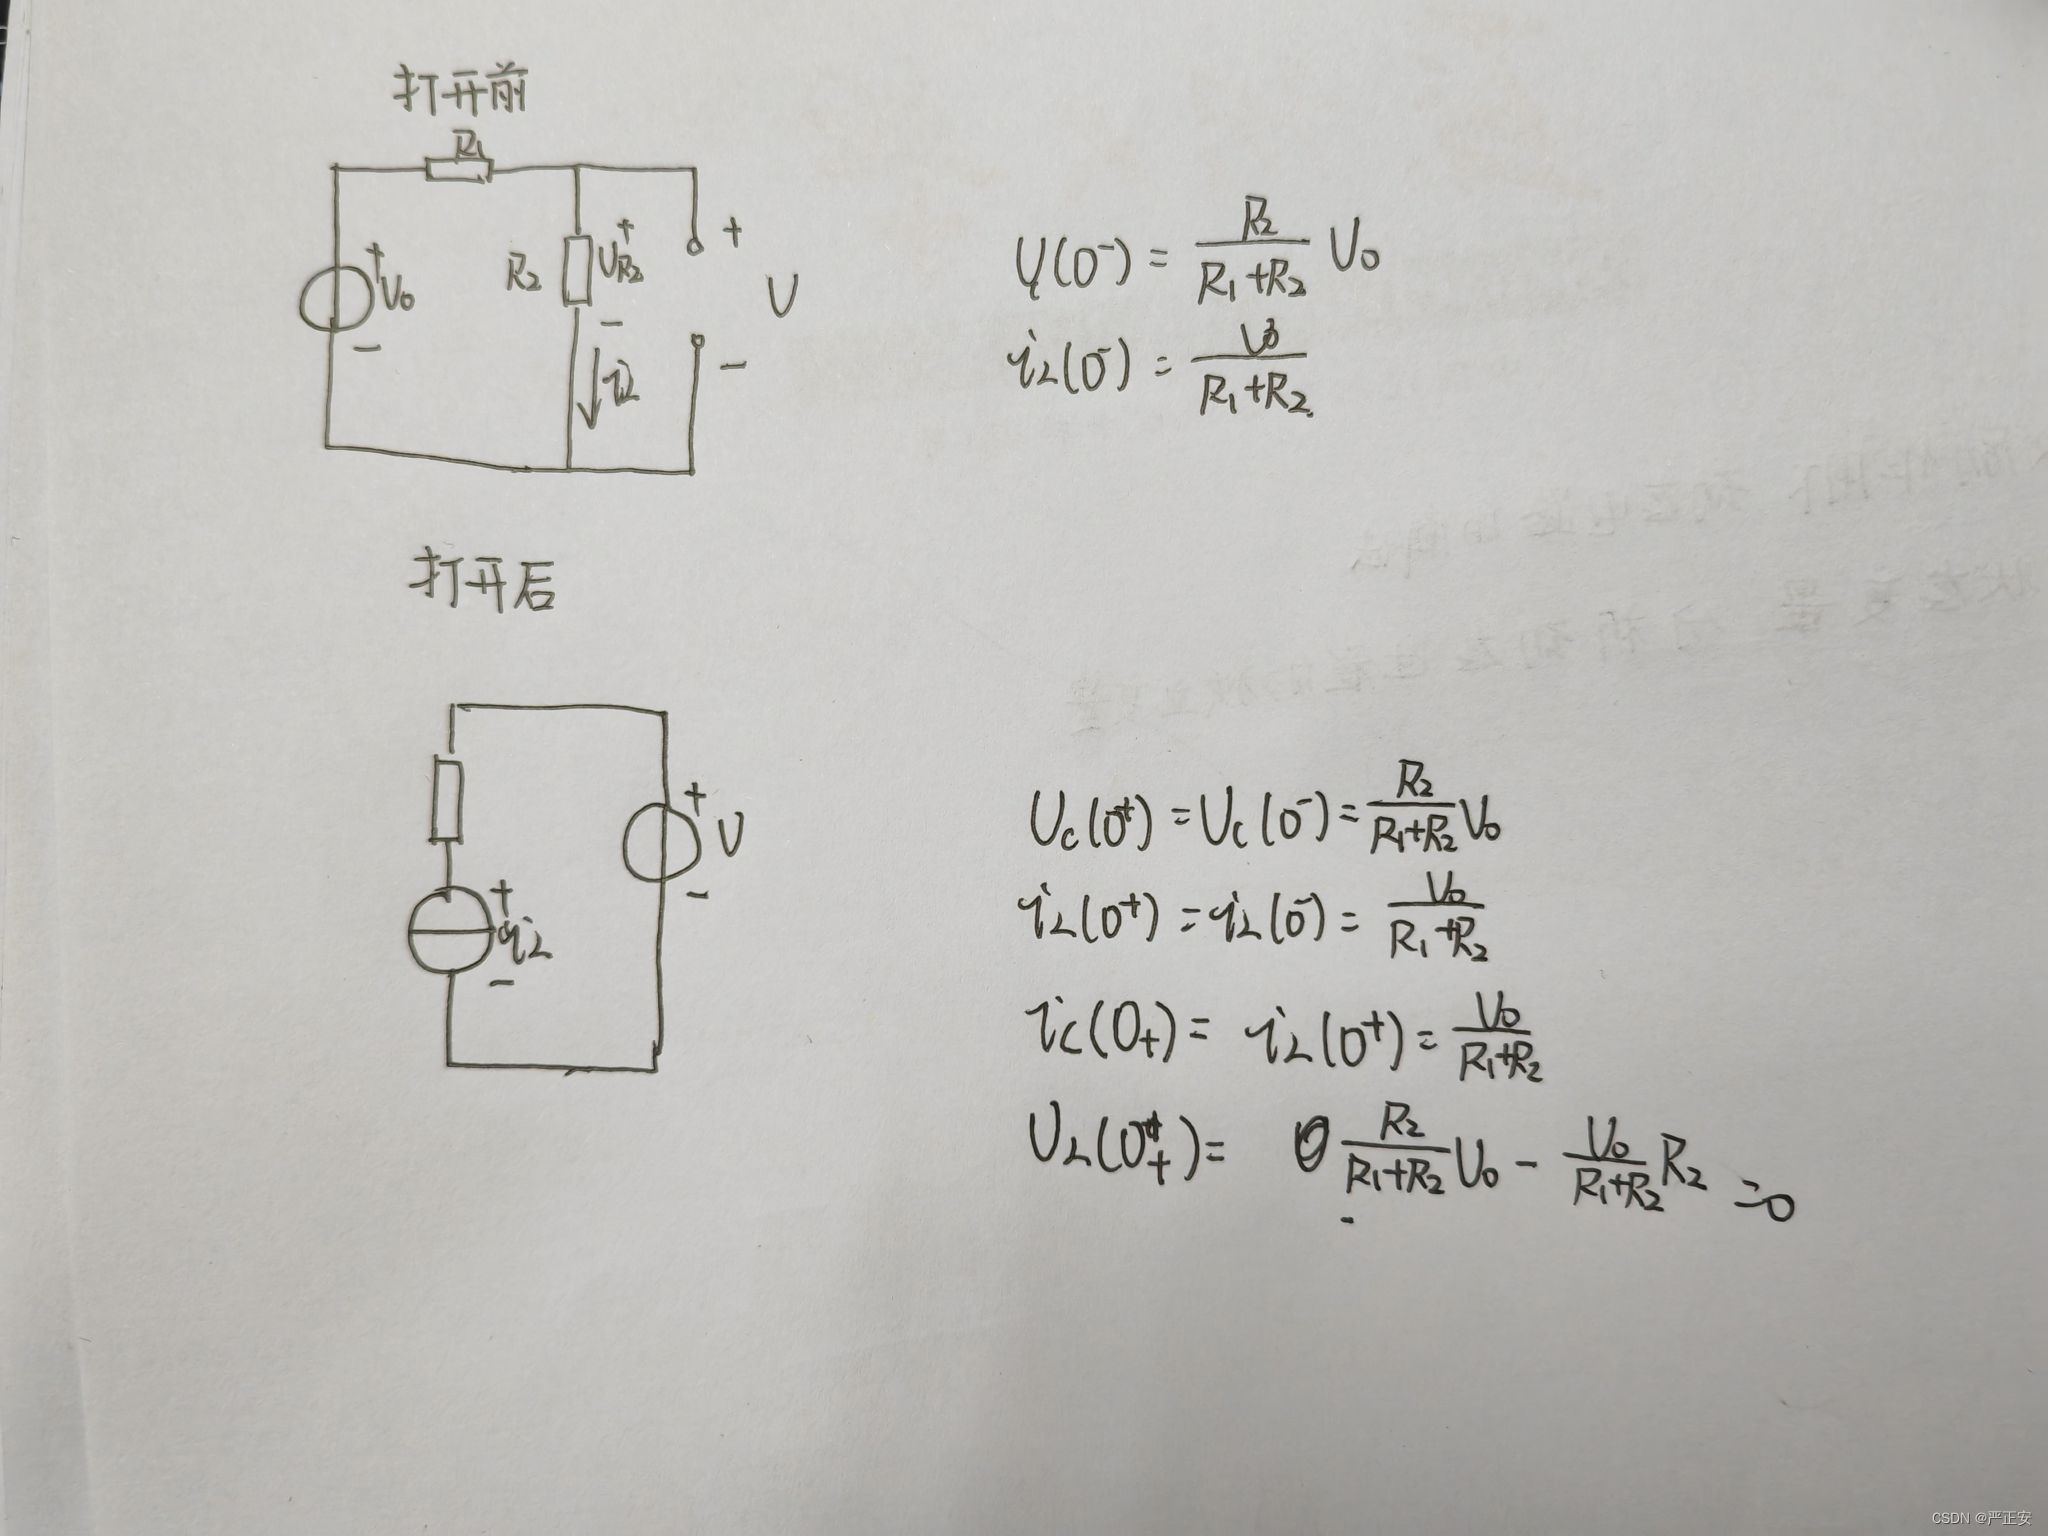 打开前
R₁
+
U₀
-
R₂
+
U_R₂
-
i_L
+
U
-
U_c(0⁻) = R₂/(R₁+R₂) U₀
i_L(0⁻) = U₀/(R₁+R₂)
打开后
+
i_L
-
+
U
-
U_c(0⁺) = U_c(0⁻) = R₂/(R₁+R₂) U₀
i_L(0⁺) = i_L(0⁻) = U₀/(R₁+R₂)
i_c(0₊) = i_L(0⁺) = U₀/(R₁+R₂)
U_L(0₊) = R₂/(R₁+R₂) U₀ - U₀/(R₁+R₂) R₂ = 0
CSDN @严正安